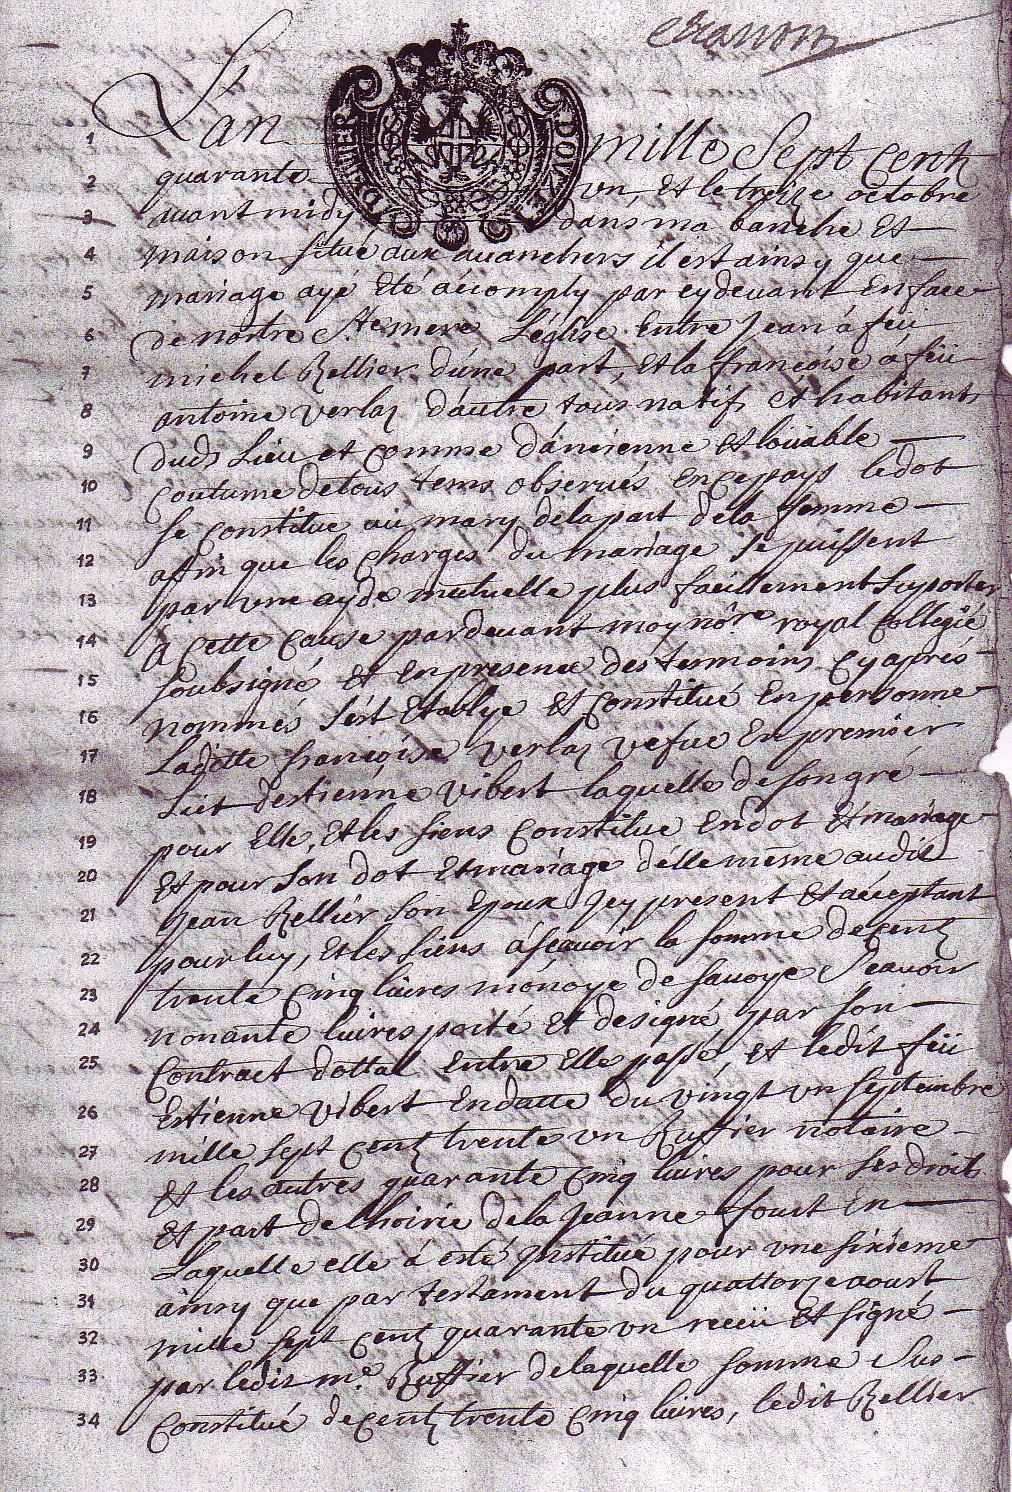 1 L'an mille Sept Cent
2 quarante un, Et le treize octobre
3 auant midy dans ma banche Et
4 maison situe aux auanchers il est ainsy que
5 mariage aye Eté accomply par cydeuant En face
6 de nostre Ste mere Léglise Entre Jean à feü
7 michel Rellier d'une part, Et la françoise à feü
8 antoine verlaz d'autre tous natifs et habitants
9 dudt Lieu et Comme d'ancienne et loüable
10 Coutume de tous tems obserués En ce pays le dot
11 se Constitue au mary de la part de la femme
12 affin que les Charges du mariage se puissent
13 par une ayde mutuelle plus facillement suporter
14 à cette Cause pardeuant moy nôre royal Collegié
15 soubsigné Et En presence des temoins Cy aprés
16 nommés s'est Etablye Et Constitué En personne
17 Laditte françoise verlaz vefue En premier
18 Lict d'estienne vibert laquelle de son gré
19 pour Elle, Et les siens Constitue En dot Et mariage
20 Et pour son dot Et mariage d'elle même audit
21 Jean Rellier son Epoux Jcy present Et acceptant
22 pour luy, Et les siens à sçauoir la somme de Cent
23 trente Cinq liures monoye de sauoye Sçauoir
24 nonante liures porté Et designé par son
25 Contract dottal Entre Elle passé, Et ledit feü
26 Estienne vibert En datte du vingt un septembre
27 mille sept Cent trente un Ruffier notaire
28 Et les autres quarante Cinq liures pour ses droits
29 Et part de lhoirie de la Jeanne fouct En
30 Laquelle elle à esté Jnstitué pour une sixieme
31 ainsy que par testament du quattorze aoust
32 mille sept Cent quarante un receü Et signé
33 par ledit me Ruffier de laquelle somme Sus
34 Constitué de Cent trente Cinq liures, ledit Rellier